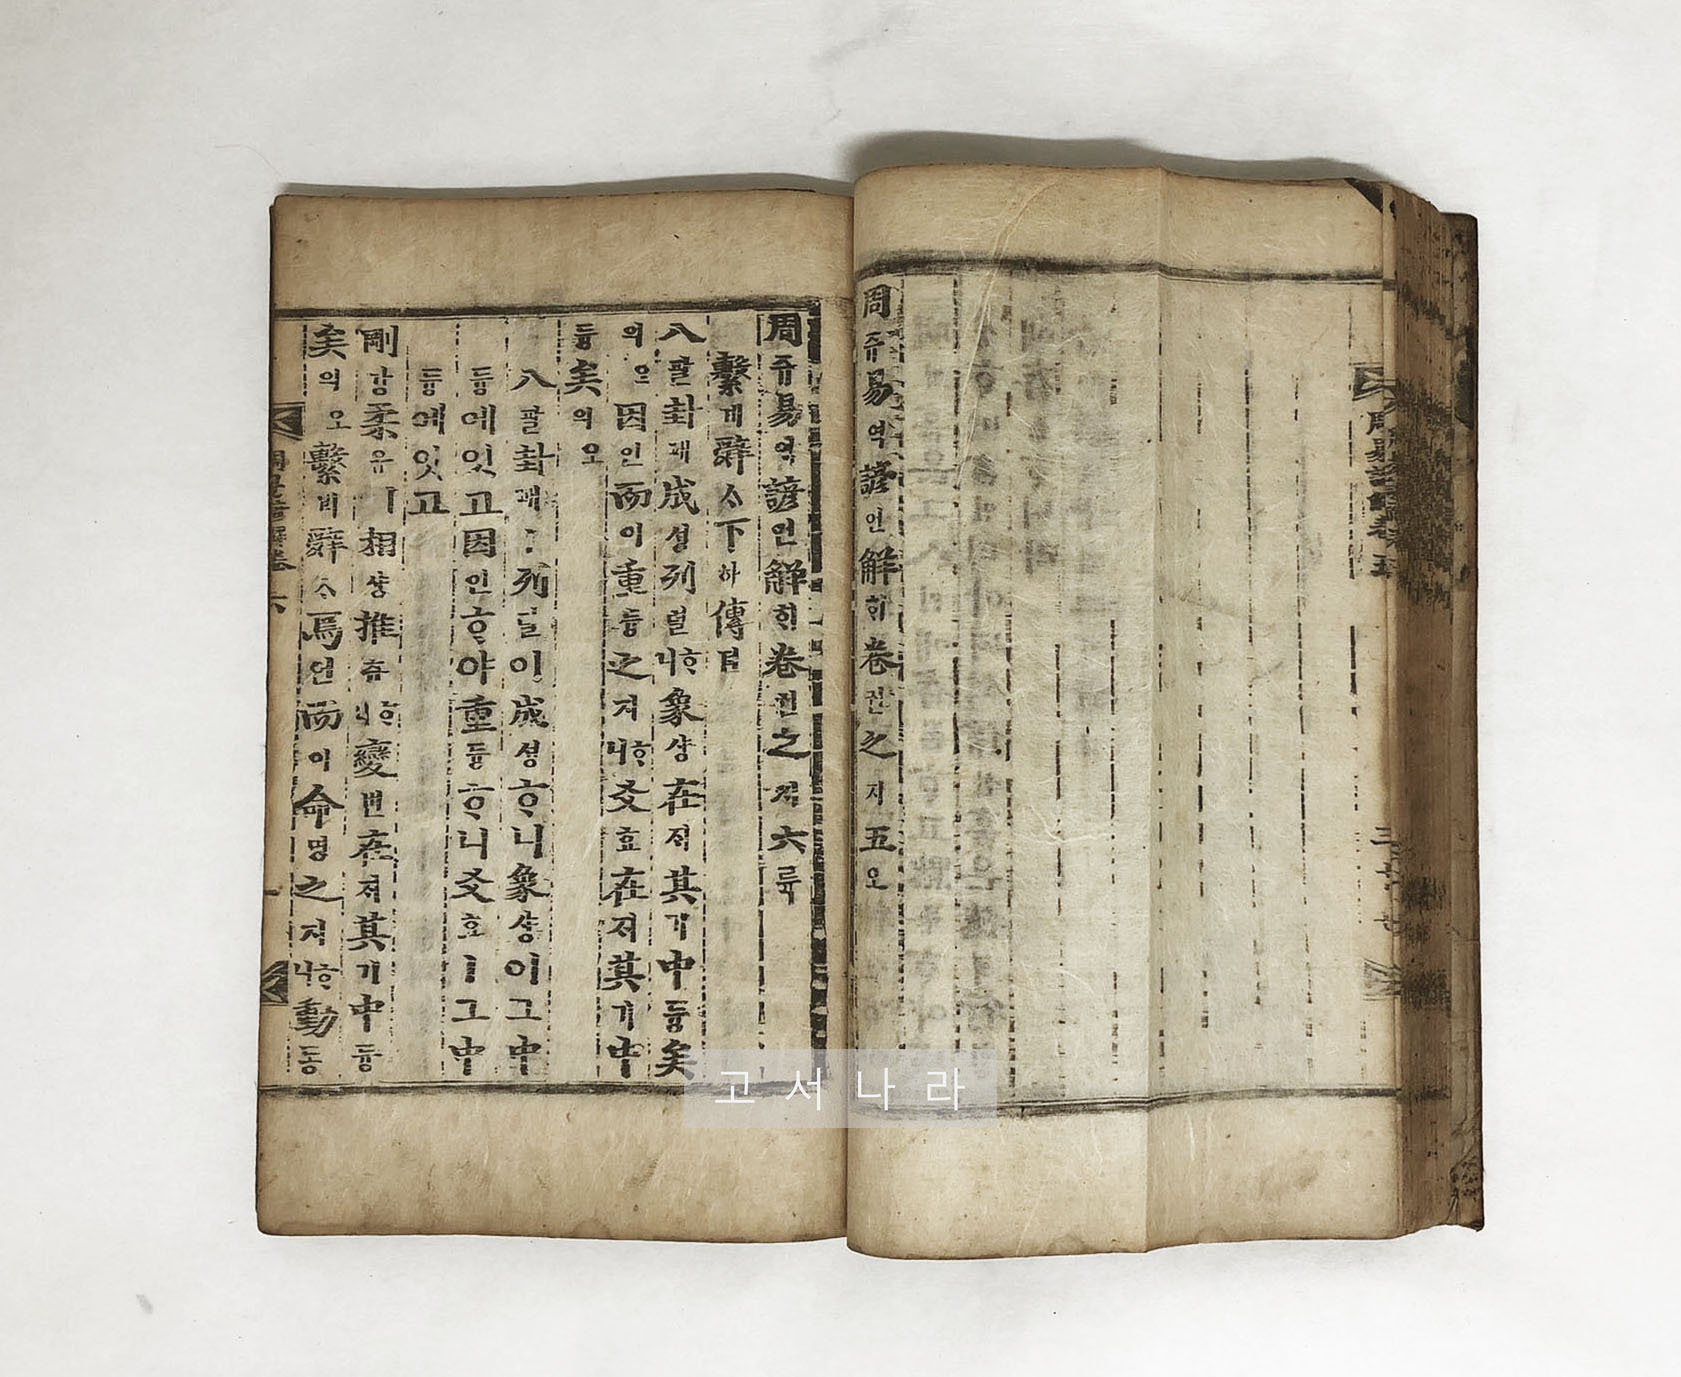 周易諺解卷五
周쥬易역諺언解ᄒᆡ卷권之지五오
周쥬易역諺언解ᄒᆡ卷권之지六륙
繫계辭ᄉᆞ下하傳뎐
八팔卦괘成셩列렬ᄒᆞ니象샹在ᄌᆡ其기中듕矣
의오因인而이重듕之지ᄒᆞ니爻효在ᄌᆡ其기中
듕矣의오
八팔卦괘ㅣ列렬이成셩ᄒᆞ니象샹이그中
듕에잇고因인ᄒᆞ야重듕ᄒᆞ니爻효ㅣ그中
듕에잇고
剛강柔유ㅣ相샹推츄ᄒᆞ니變변在ᄌᆡ其기中듕
矣의오繫계辭ᄉᆞ焉언而이命명之지ᄒᆞ니動동
周易諺解卷六
一
고서나라